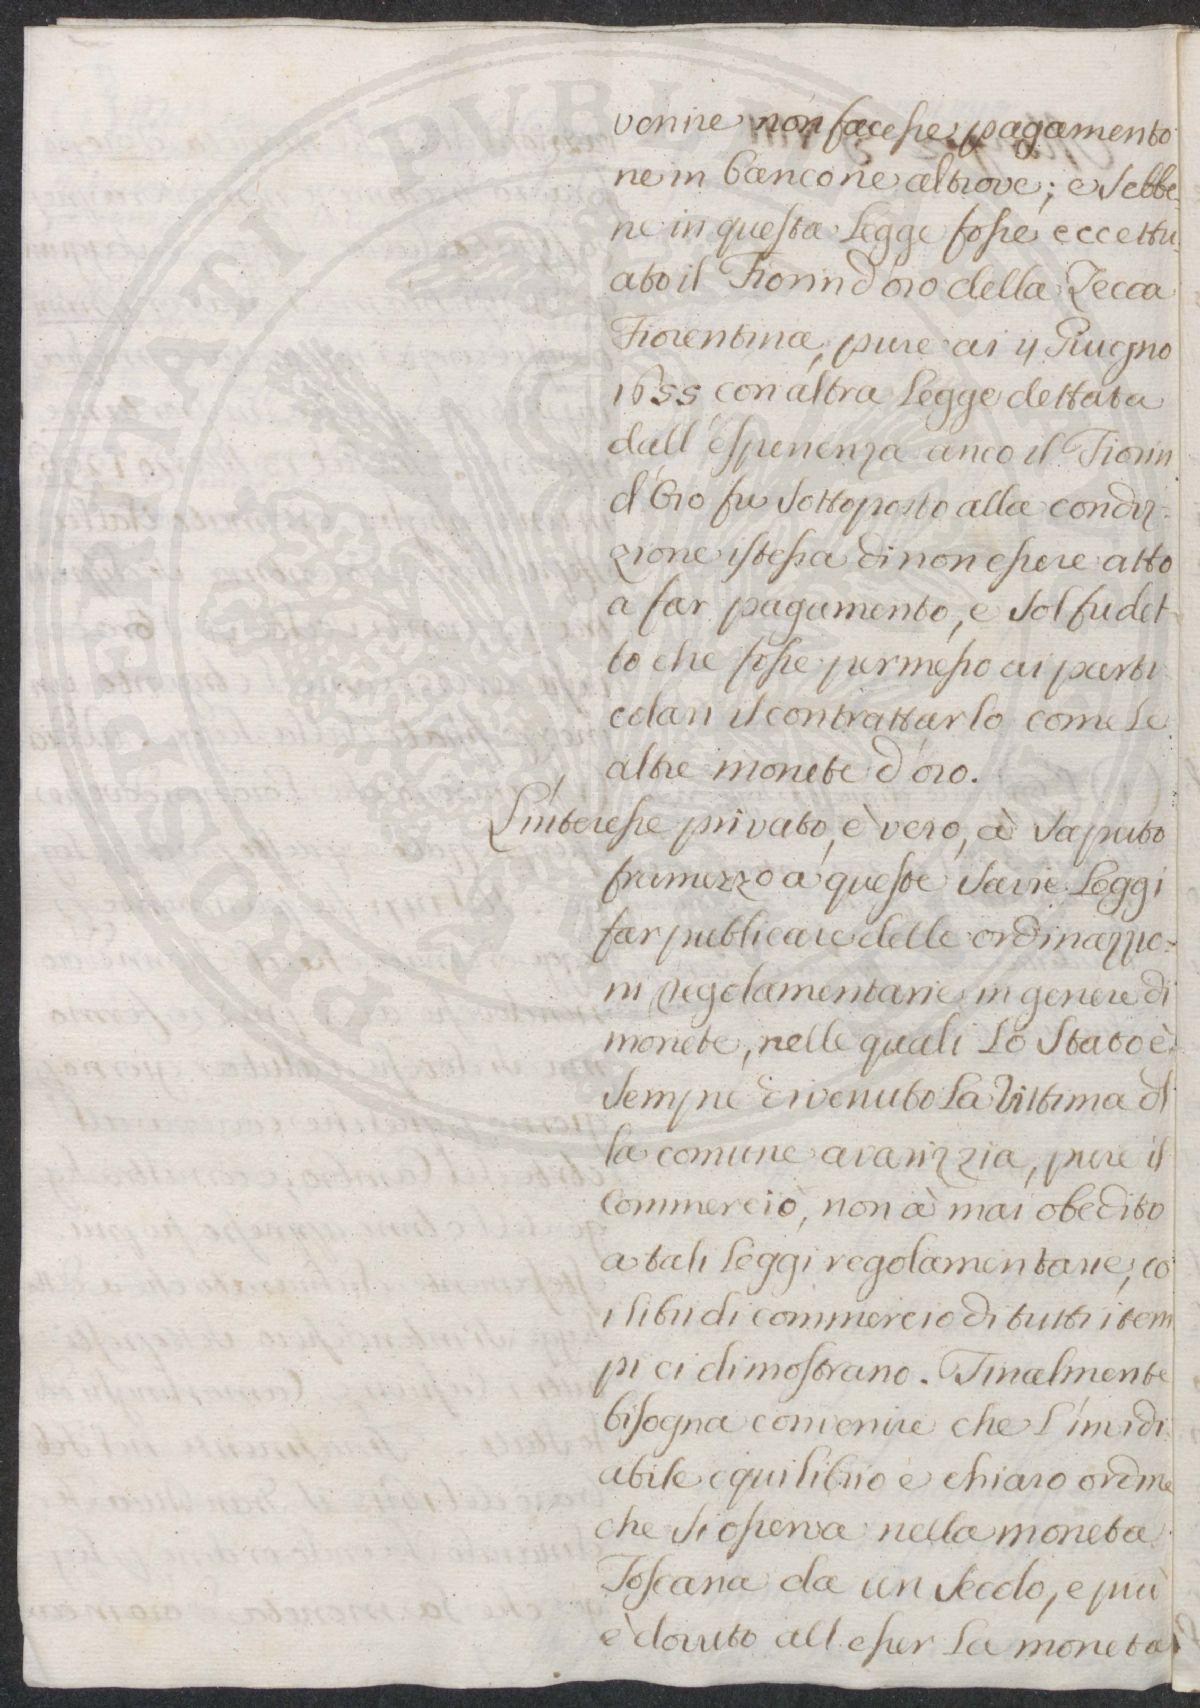 PROSPERITATI PVBLI
venire non facesse pagamento
ne in banco ne altrove; e sebbe-
ne in questa Legge fosse eccettu-
ato il Fiorin d'oro della Zecca
Fiorentina, pure ai 4 Giugno
1655 con altra Legge dettata
dall'esperienza anco il Fiorin
d'Oro fu sottoposto alla condiz-
zione istessa di non essere atto
a far pagamento, e sol fu det-
to che fosse permesso ai parti-
colari il contrattarlo come le
altre monete d'oro.
L'interesse privato, è vero, à saputo
framezzo a queste savie Leggi
far publicare delle ordinazzio-
ni regolamentarie in genere di
monete, nelle quali lo stato è
sempre divenuto la Vittima del
la comune avarizzia, pure il
commercio, non à mai obedito
a tali Leggi regolamentarie, co
i libri di commercio di tutti i tem
pi ci dimostrano. Finalmente
bisogna convenire che l'invidi-
abile equilibrio e chiaro ordine
che si osserva nella moneta
Toscana da un secolo, e più
è dovuto all'esser la moneta